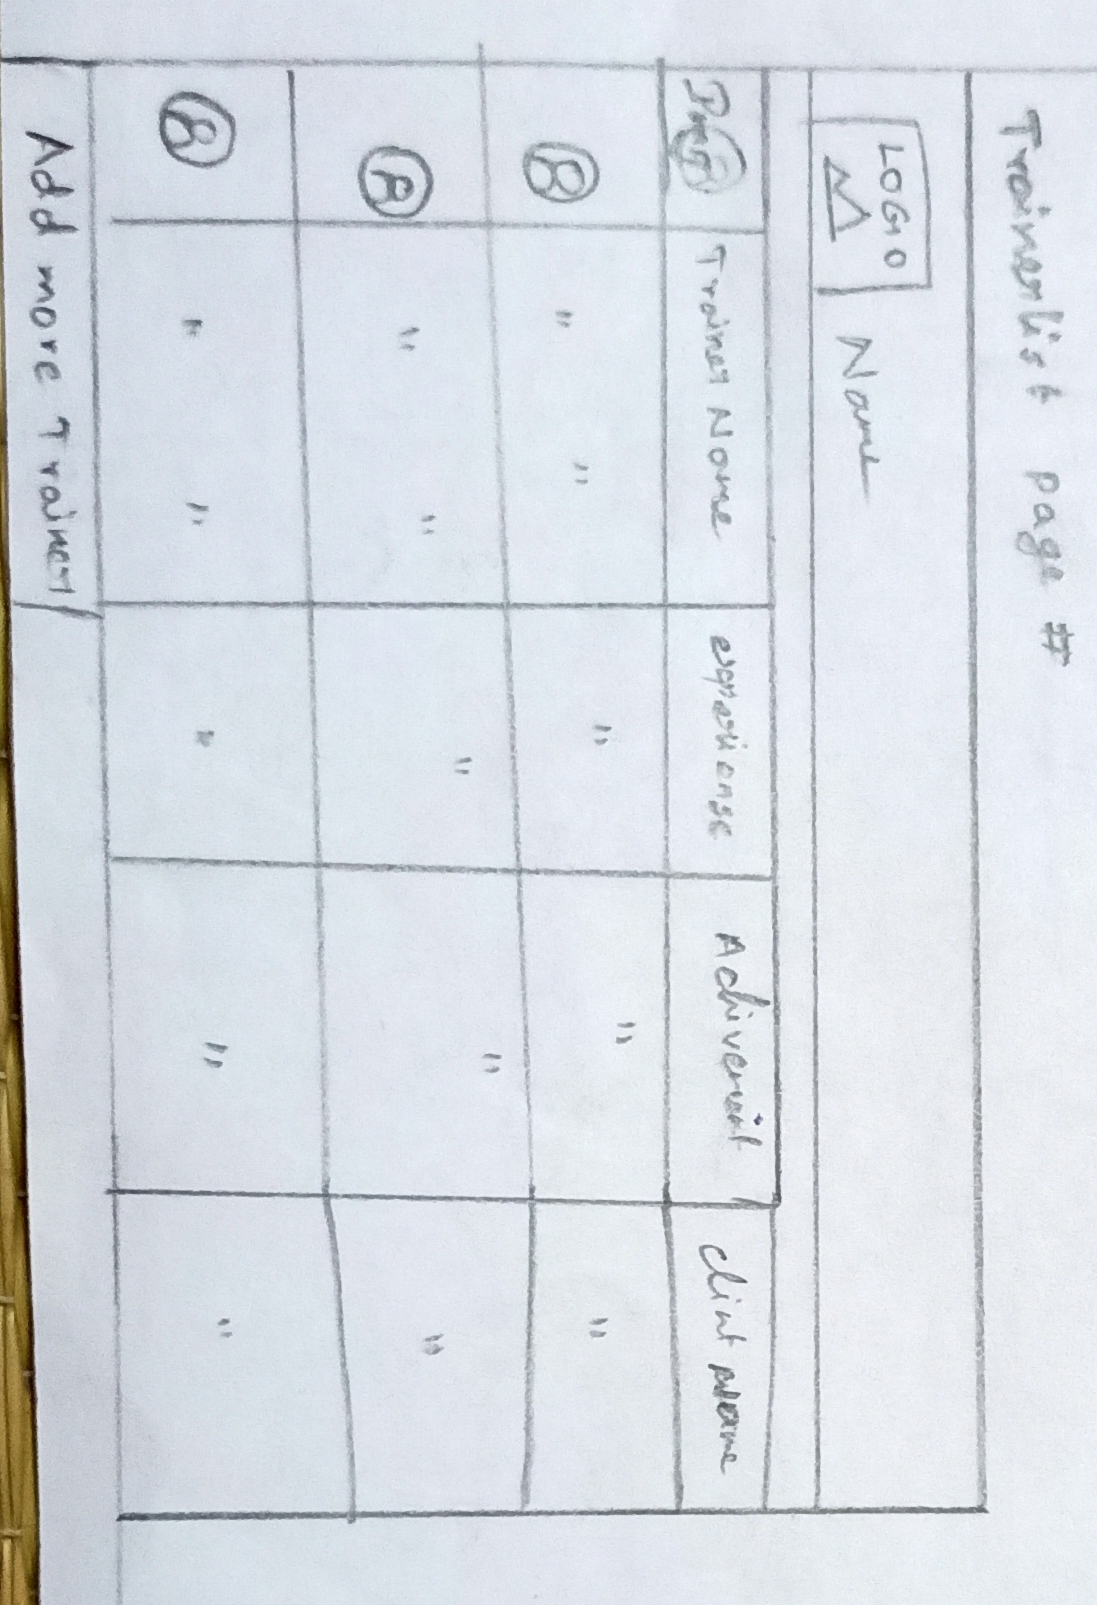 Trainerlist page #
LOGO Name
Trainer Name experiense Achivement Clint Name
" " " " "
" " " " "
" " " " "
Add more Trainer